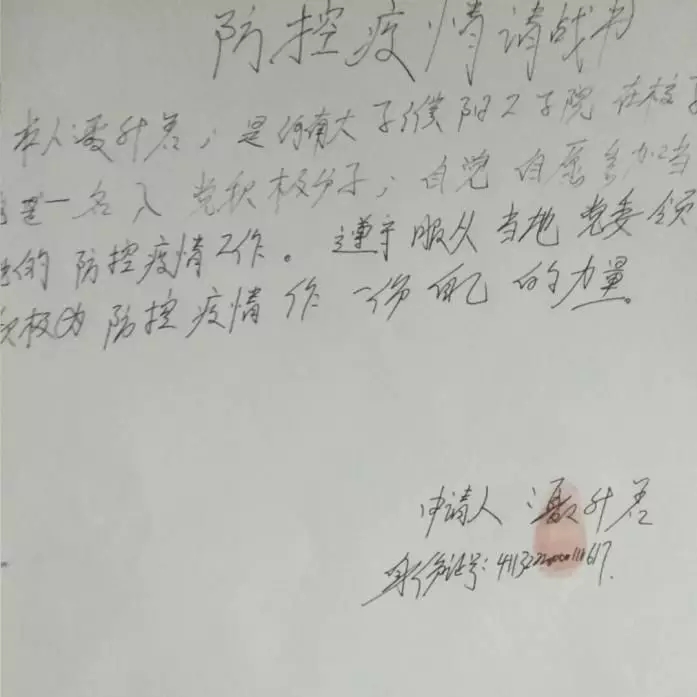 防控疫情请战书
本人聂升君,是河南大学濮阳工学院在校
是一名入党积极分子,自觉自愿参加当
地的防控疫情工作。遵守服从当地党委领
积极为防控疫情作一份自己的力量。
申请人 聂升君
身份证号: